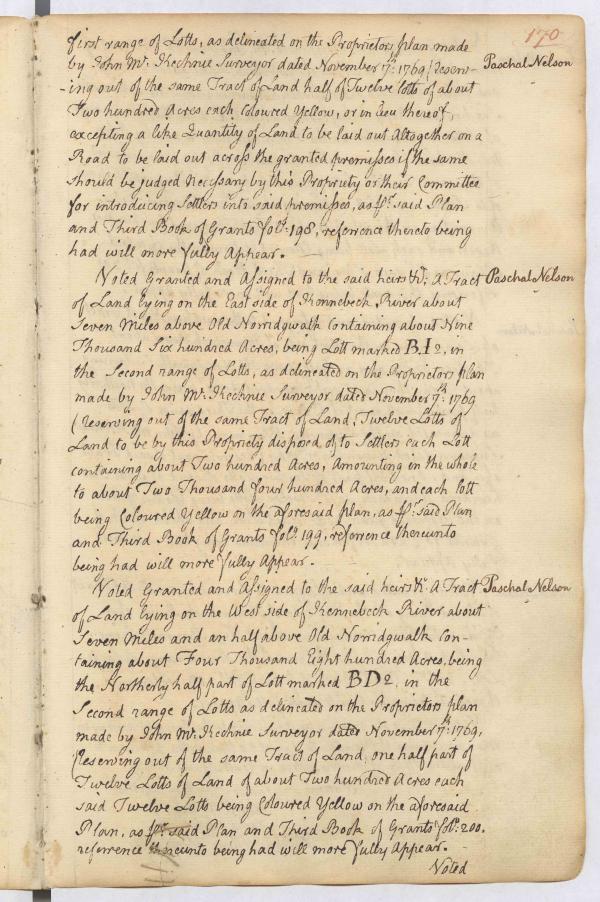 170
first range of Lotts, as delineated on the Proprietors plan made
by John Mc. Kechnie Surveyor dated November 7th. 1769 (Reserv-
-ing out of the same Tract of Land half of Twelve lotts of about
Two hundred Acres each Coloured Yellow, or in Lieu thereof,
excepting a like Quantity of Land to be laid out altogether on a
Road to be laid out across the granted premisses if the same
should be judged necessary by this Propriety or their Committee
for introducing Settlers into said premisses, as pr. said Plan
and Third Book of Grants folo. 198, reference thereto being
had will more fully Appear.
Paschal Nelson
Voted Granted and Assigned to the said heirs &c. A Tract
of Land lying on the East side of Kennebeck River about
Seven Miles above Old Norridgwalk containing about Nine
Thousand Six hundred Acres, being Lott marked B.I 2, in
the Second range of Lotts, as delineated on the Proprietors plan
made by John Mc. Kechnie Surveyor dated November 7th. 1769
(Reserving out of the same Tract of Land, Twelve Lotts of
Land to be by this Propriety disposed of to Settlers each Lott
containing about Two hundred Acres, amounting in the whole
to about Two Thousand four hundred Acres, and each lott
being Coloured Yellow on the aforesaid plan, as pr. said Plan
and Third Book of Grants folo. 199, reference thereunto
being had will more fully Appear.
Paschal Nelson
Voted Granted and Assigned to the said heirs &c. A Tract
of Land lying on the West side of Kennebeck River about
Seven Miles and an half above Old Norridgwalk Con-
taining about Four Thousand Eight hundred Acres, being
the Northerly half part of Lott marked BD2, in the
Second range of Lotts as delineated on the Proprietors plan
made by John Mc. Kechnie Surveyor dated November 7th. 1769,
(Reserving out of the same Tract of Land, one half part of
Twelve Lotts of Land of about Two hundred Acres each
said Twelve Lotts being Coloured Yellow on the aforesaid
Plan, as pr. said Plan and Third Book of Grants folo. 200.
reference thereunto being had will more fully Appear.
Paschal Nelson
Voted